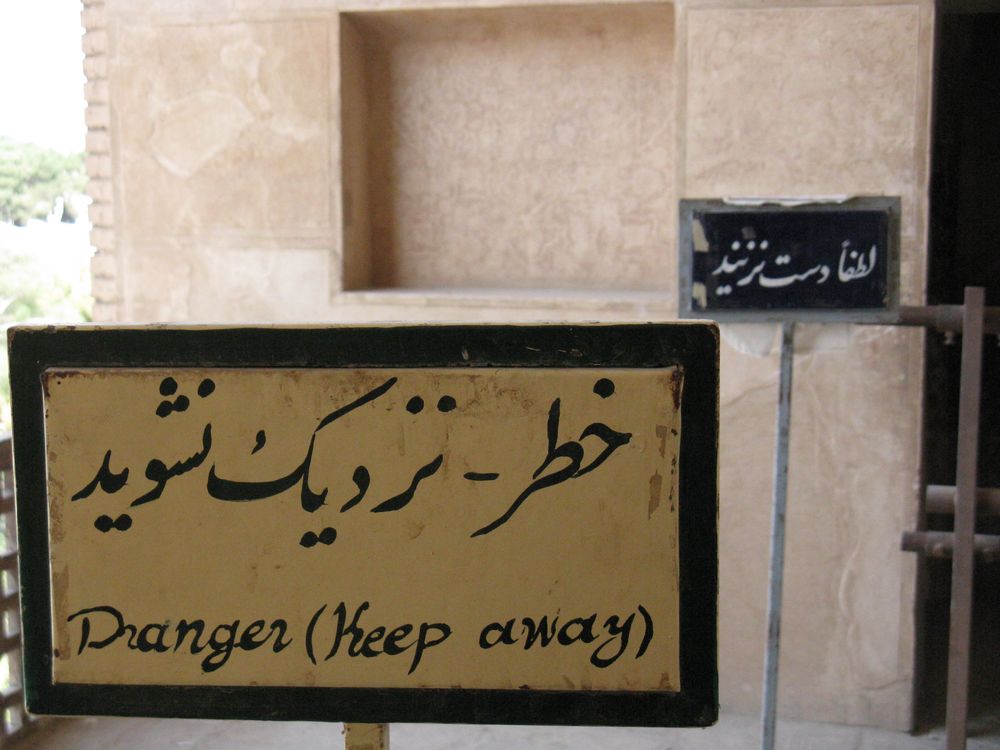 خطر - نزدیک نشوید
Dranger (Keep away)
لطفاً دست نزنید